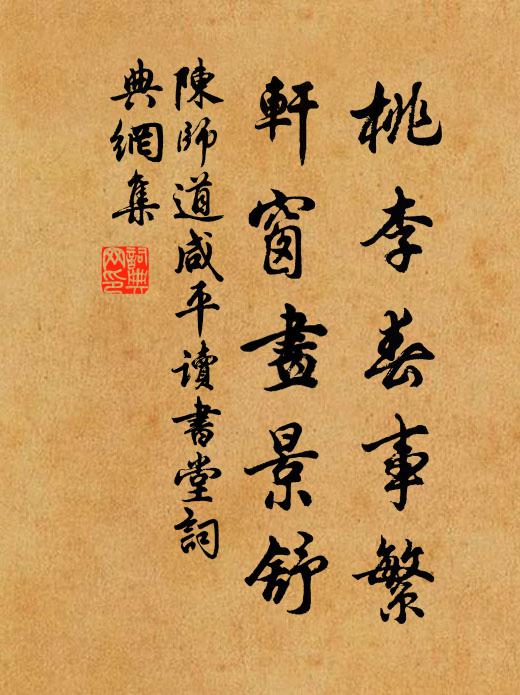 桃李春事繁
軒窗晝景舒
陳師道咸平讀書堂詞
典網集
詞典网印